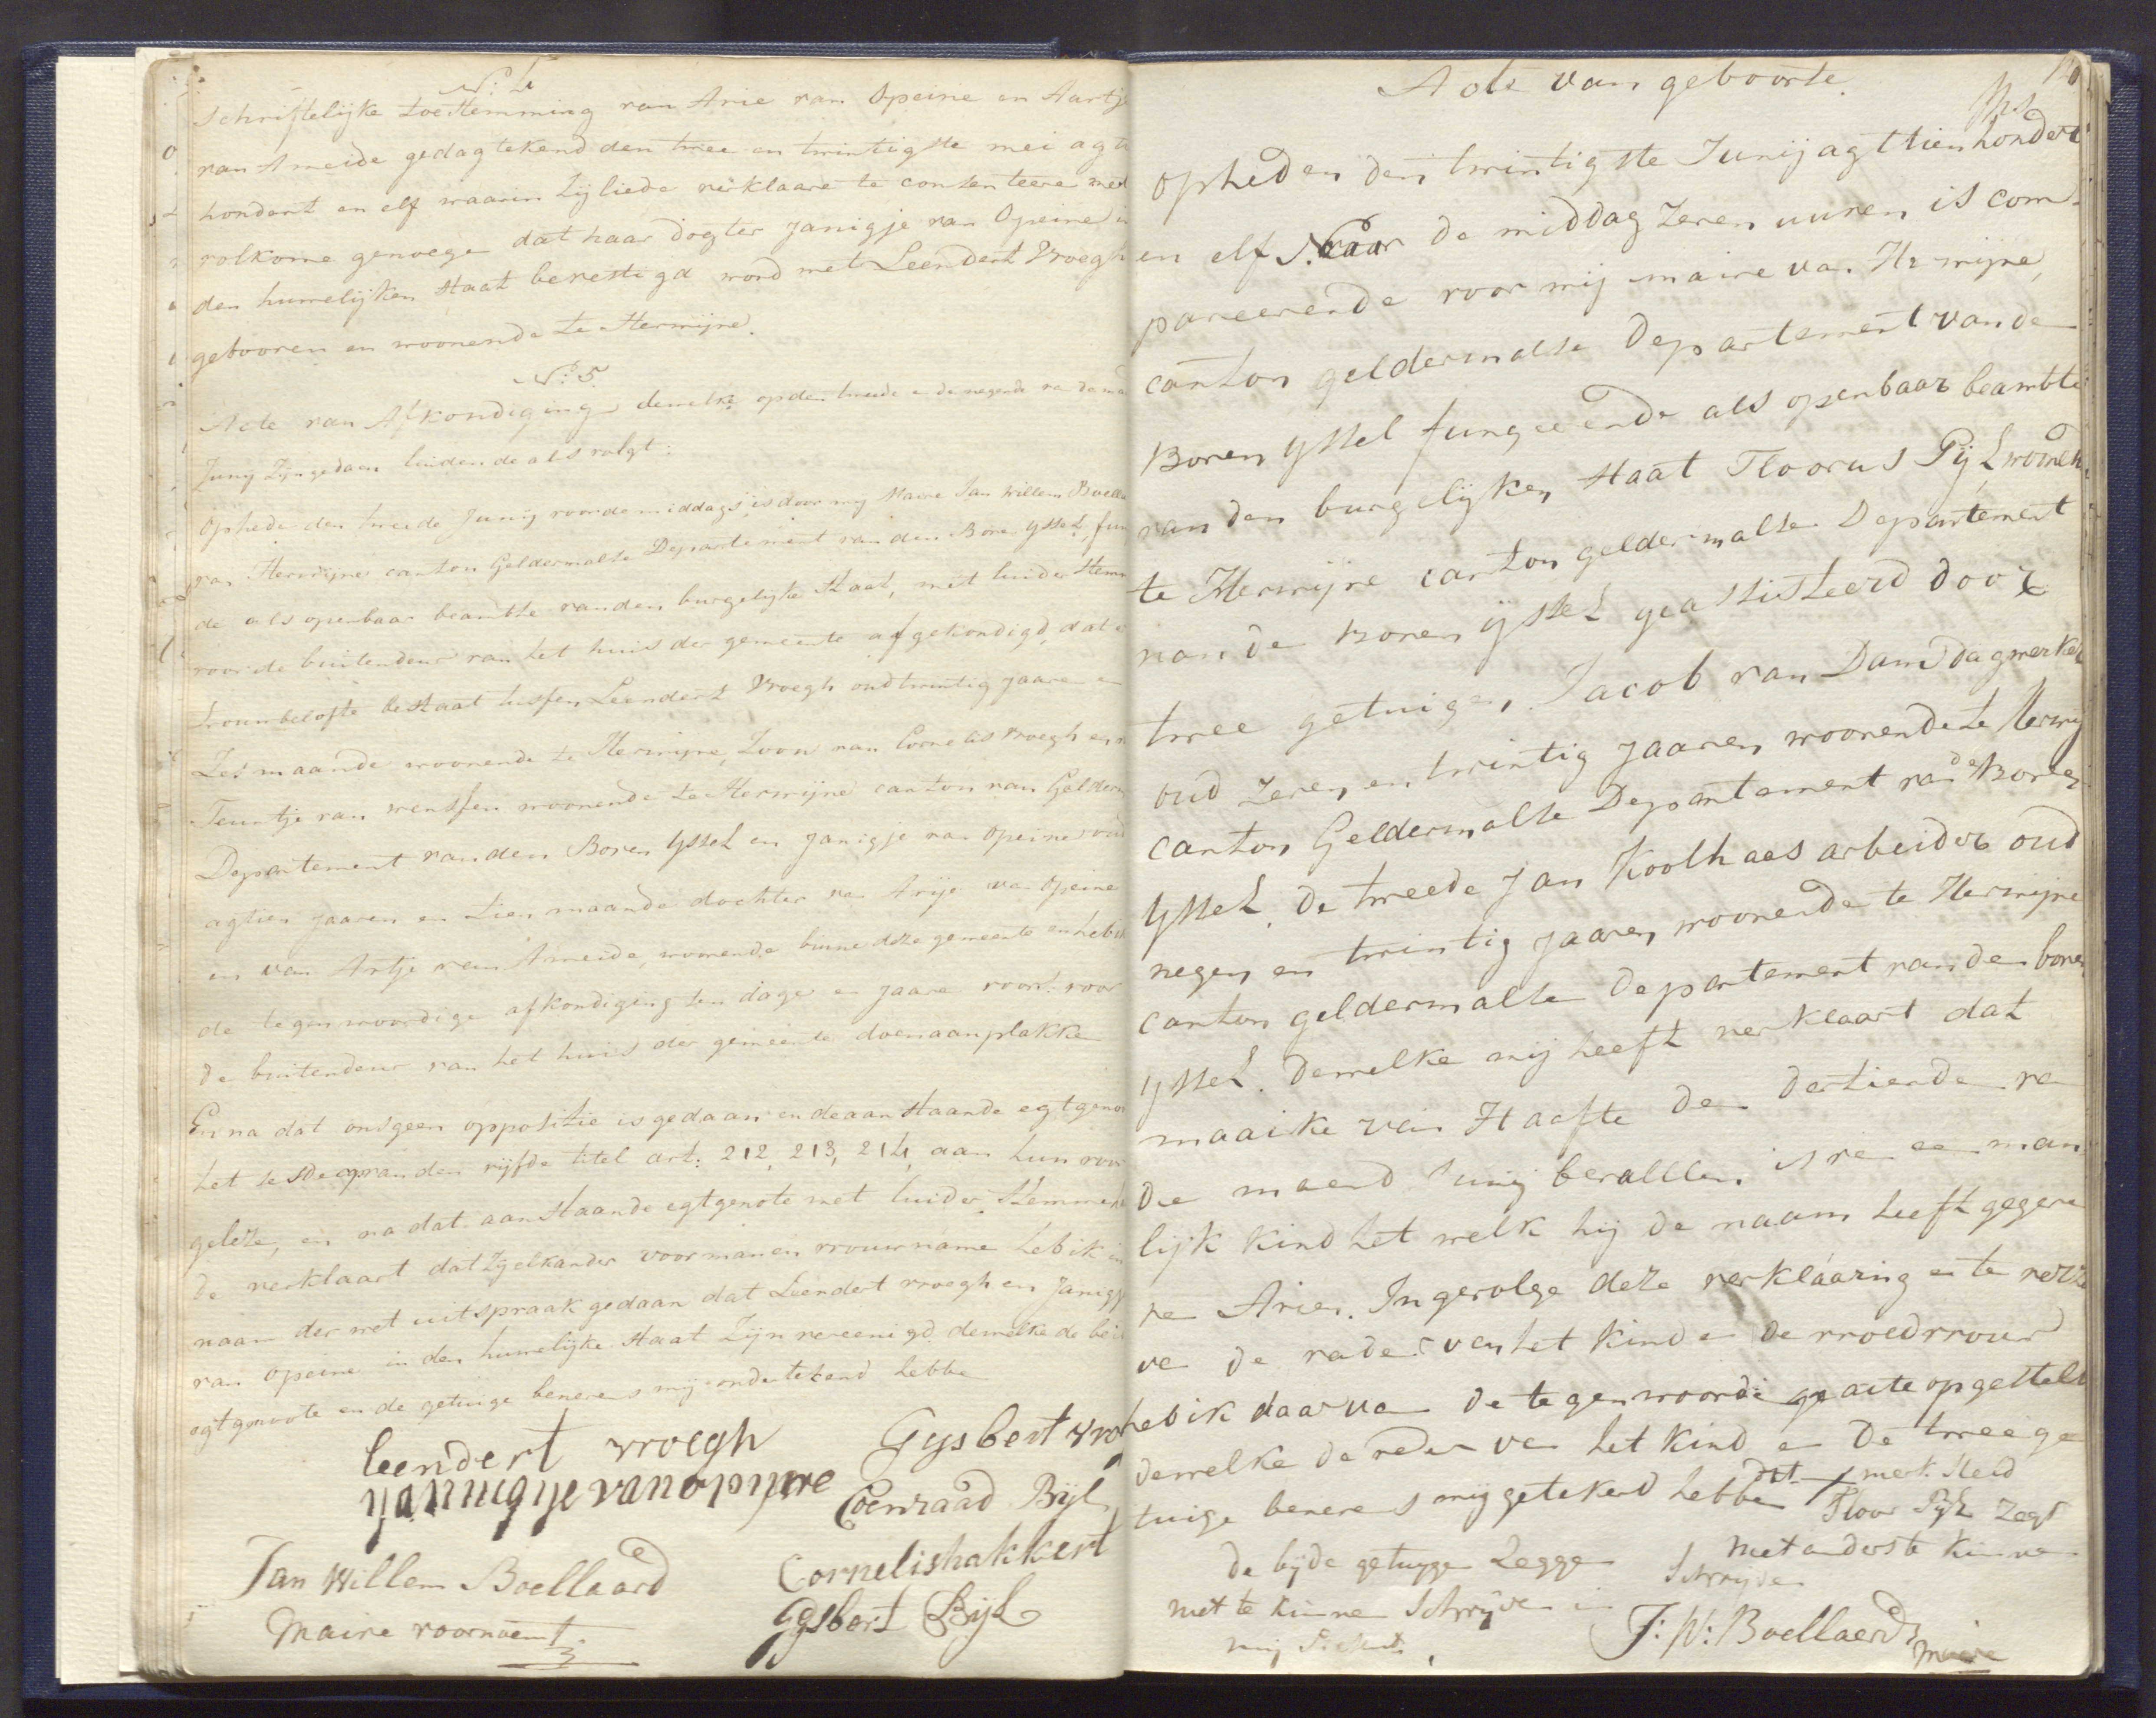 N: 4
Schriftelijke toestemming van Arie van Opeine en Aartje
van Ameide gedagtekend den twee en twintigste mei agt
hondert en elf waarin zij liede verklaare te consenteere met
volkome genoege dat haar dogter Janigje van Opeine in
den huwelijken staat bevestigd word met Leendert Vroegh
gebooren en woonende te Herwijne.
N: 5
Acte van Afkondiging dewelke op den tweede en de negende van de ma
Juny zijn gedaan luidende als volgt:
Opheden den tweede Junij voor de middags is door mij Maire Jan Willem Boella
van Herwijne canton Geldermalse Departement van den Boven Yssel, fun
de als openbaar beambte van den burgelijke staat, met luider stemm
voor de buitendeur van het huis der gemeente afgekondigd, dat er
trouwbelofte bestaat tussen Leendert Vroegh oud twintig jaare en
zes maande woonende te Herwijne, zoon van Cornelis Vroegh en v
Teuntje van wensfen woonende te Herwijne canton van Gelderm
Departement van den Boven Yssel en Janigje van Opeine oud
agtien jaaren en tien maande dochter van Arije van Opeine
en van Artje van Ameide, woonende binne deze gemeente en heb ik
de tegenwoordige afkondiging ten dage en jaare voor: voor
de buitendeur van het huis der gemeente doen aanplakke
En na dat ons geen oppositie is gedaan en de aanstaande egtgenoo
het sesde cap van den vijfde titel art: 212, 213, 214, aan hun voor
geleze, en na dat aanstaande egtgenote met luider stemme he
de verklaart dat zij elkander voor man en vrouw name heb ik in
naam der wet uitspraak gedaan dat Leendert vroegh en Janigje
van Opeine in den huwelijke staat zijn vereenigd, dewelke de beide
egtgenoote en de getuige benevens mij ondertekend hebbe
leendert vroegh
Gysbert vro
yannigye van opyne
Coenraad Bijl
Jan Willem Boellaard
Cornelis hakkert
Maire voornoemt
Gysbert Bijl
Acte van geboorte.
Opheden den twintigste Junij agttienhondert
en elf S. naar de middag zeven uuren is com-
pareerende voor mij maire van Herwijne,
canton geldermalse Departement van de
Boven yssel fungeerende als openbaar beambte
van den burgelijken staat Floorus Pijl, woonen
te Herwijne canton geldermalse Departement
van de Boven ijssel geassisteerd door
twee getuigen, Jacob van Dam dagwerker
oud zeven en twintig jaaren woonende te Herwij
canton Geldermalse Departement van de Boven
Yssel, de tweede Jan Koolhaas arbeider oud
negen en twintig jaaren woonende te Herwijne
canton geldermalse Departement van den boven
yssel. Dewelke mij heeft verklaart dat
maaike van Haafte den dertiende va
de maand Junij bevallen is van een man
lijk kind het welk hij de naam heeft gegeve
van Arien. Ingevolge deze verklaaring en te verzoe
van de vader van het kind en de vroedvrouw
heb ik daar van de tegenwoordige acte opgestelt
dewelke de vader van het kind en de twee ge
tuige benevens mij getekend hebbe dit merk steld
Floor Pijl zegt
niet anders te kinne
schrijve
de bijde getuyge zegge
niet te kinne schrijve
J: W: Boellaerd
maire